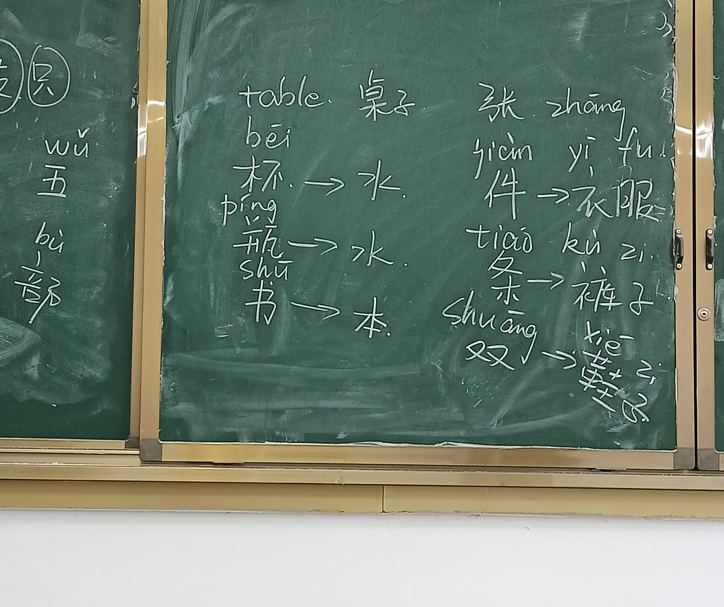 只
wǔ
五
bù
部
table. 桌子.
bēi
杯. → 水.
píng
瓶 → 水.
shū
书 → 本.
张. zhāng
jiàn yī fu.
件 → 衣服
tiáo kù zi.
条 → 裤子
shuāng xié zi
双 → 鞋子